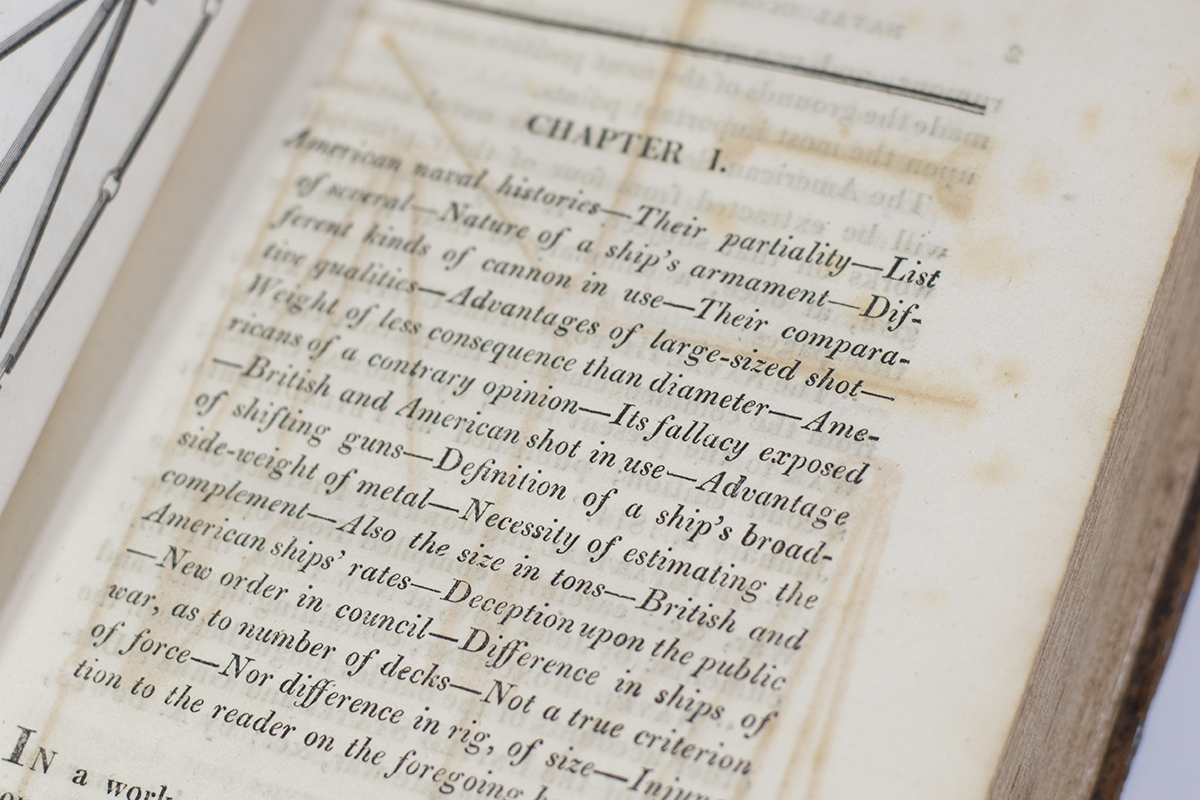 CHAPTER I.
American naval histories—Their partiality—List
of several—Nature of a ship's armament—Dif-
ferent kinds of cannon in use—Their compara-
tive qualities—Advantages of large-sized shot—
Weight of less consequence than diameter—Ame-
ricans of a contrary opinion—Its fallacy exposed
—British and American shot in use—Advantage
of shifting guns—Definition of a ship's broad-
side-weight of metal—Necessity of estimating the
complement—Also the size in tons—British and
American ships' rates—Deception upon the public
—New order in council—Difference in ships of
war, as to number of decks—Not a true criterion
of force—Nor difference in rig, of size—Injunc
tion to the reader on the foregoing
IN a work